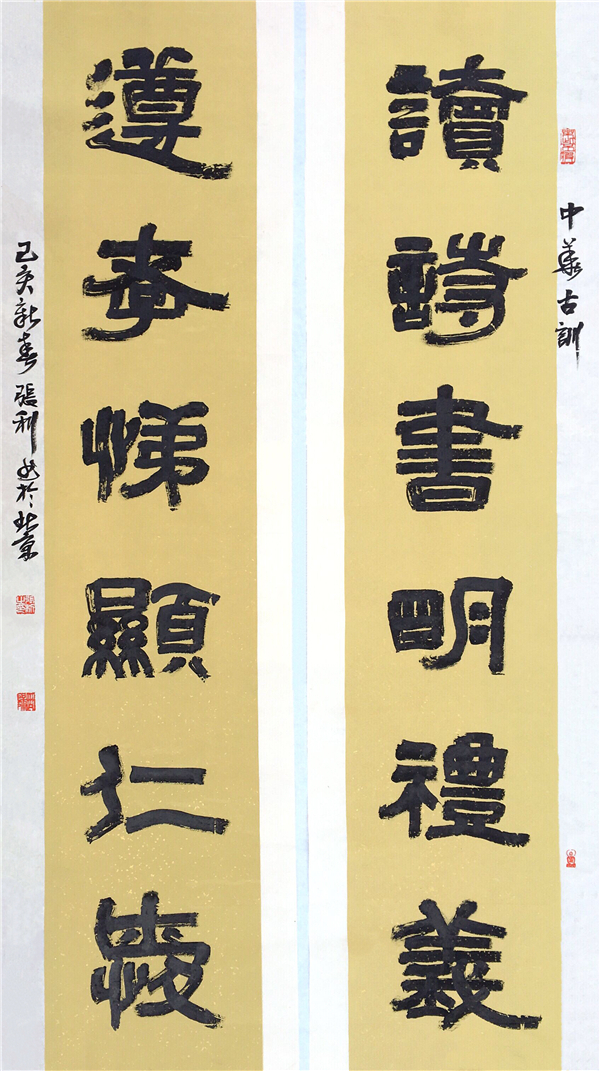 中華古訓
讀詩書明禮義
遵孝悌顯仁
己亥新春張利书於北京